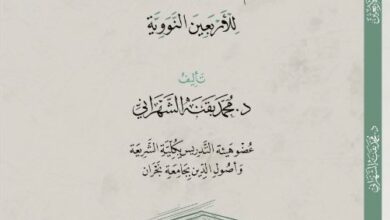 لِلأَرْبَعِينَ النَّوَوِيَّةِ
تَأْلِيفُ
د. محمد بقنه الشهراني
عُضْوُ هَيْئَةِ التَّدْرِيسِ بِكُلِّيَّةِ الشَّرِيعَةِ
وَأُصُولِ الدِّينِ بِجَامِعَةِ نَجْرَان
د. محمد بقنه الشهراني